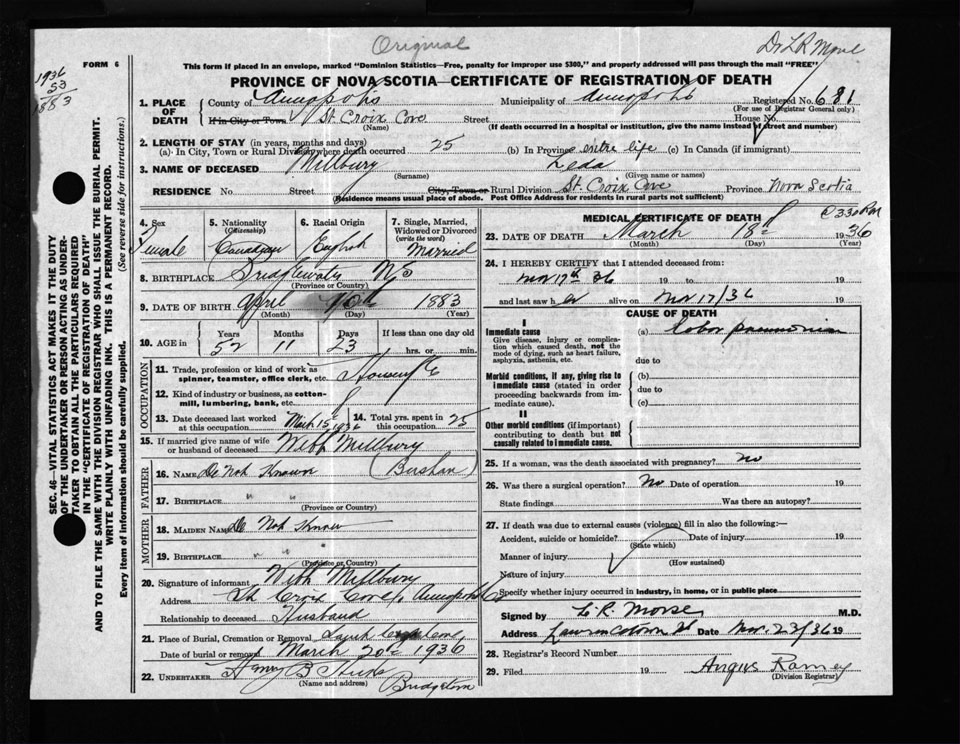 Original
Dr L R Morse
1936
53
1883
FORM 6
This form if placed in an envelope, marked "Dominion Statistics—Free, penalty for improper use $300," and properly addressed will pass through the mail "FREE"
PROVINCE OF NOVA SCOTIA—CERTIFICATE OF REGISTRATION OF DEATH
1. PLACE OF DEATH County of Annapolis Municipality of Annapolis Registered No. 681
(For use of Registrar General only)
If in City or Town St. Croix Cove Street House No.
(Name) (If death occurred in a hospital or institution, give the name instead of street and number)
2. LENGTH OF STAY (in years, months and days)
(a) In City, Town or Rural Division where death occurred 25 (b) In Province entire life (c) In Canada (if immigrant)
3. NAME OF DECEASED Millbury Leda
(Surname) (Given name or names)
RESIDENCE No Street City, Town or Rural Division St. Croix Cove Province Nova Scotia
(Residence means usual place of abode. Post Office Address for residents in rural parts not sufficient)
4. Sex Female
5. Nationality (Citizenship) Canadian
6. Racial Origin English
7. Single, Married, Widowed or Divorced (write the word) Married
8. BIRTHPLACE Bridgewater NS
(Province or Country)
9. DATE OF BIRTH April 1883
(Month) (Day) (Year)
10. AGE in Years Months Days If less than one day old
52 11 23 hrs. or min.
OCCUPATION
11. Trade, profession or kind of work as spinner, teamster, office clerk, etc.
12. Kind of industry or business, as cotton-mill, lumbering, bank, etc.
13. Date deceased last worked at this occupation Mch 15th 1936
14. Total yrs. spent in this occupation 25
15. If married give name of wife or husband of deceased Millbury
FATHER
16. NAME Do Not Known
17. BIRTHPLACE " "
(Province or Country)
MOTHER
18. MAIDEN NAME Do Not Known
19. BIRTHPLACE " "
(Province or Country)
20. Signature of informant Millbury
Address St Croix Cove Annapolis Co
Relationship to deceased Husband
21. Place of Burial, Cremation or Removal
Date of burial or removal March 20th 1936
22. UNDERTAKER Henry B Hicks
(Name and address) Bridgetown
MEDICAL CERTIFICATE OF DEATH
@ 3 30 PM
23. DATE OF DEATH March 18th 1936
(Month) (Day) (Year)
24. I HEREBY CERTIFY that I attended deceased from:
Mar 17th 36 19 to 19
and last saw her alive on Mar 17/36 19
CAUSE OF DEATH
I
Immediate cause (a) Lobar pneumonia
Give disease, injury or complication which caused death, not the mode of dying, such as heart failure, asphyxia, asthenia, etc.
due to
Morbid conditions, if any, giving rise to immediate cause (stated in order proceeding backwards from immediate cause).
(b)
due to
(c)
II
Other morbid conditions (if important) contributing to death but not causally related to immediate cause.
25. If a woman, was the death associated with pregnancy? No
26. Was there a surgical operation? No Date of operation 19
State findings Was there an autopsy?
27. If death was due to external causes (violence) fill in also the following:—
Accident, suicide or homicide? Date of injury 19
(State which)
Manner of injury
(How sustained)
Nature of injury
Specify whether injury occurred in industry, in home, or in public place
Signed by L. R. Morse M.D.
Address Lawrencetown Date Mar. 23/36 19
28. Registrar's Record Number
29. Filed 19 Angus Ramey
(Division Registrar)
SEC. 46—VITAL STATISTICS ACT MAKES IT THE DUTY
OF THE UNDERTAKER OR PERSON ACTING AS UNDER-
TAKER TO OBTAIN ALL THE PARTICULARS REQUIRED
IN THE "CERTIFICATE OF REGISTRATION OF DEATH"
AND TO FILE THE SAME WITH THE DIVISION REGISTRAR WHO SHALL ISSUE THE BURIAL PERMIT.
WRITE PLAINLY WITH UNFADING INK. THIS IS A PERMANENT RECORD.
Every item of information should be carefully supplied. (See reverse side for instructions.)